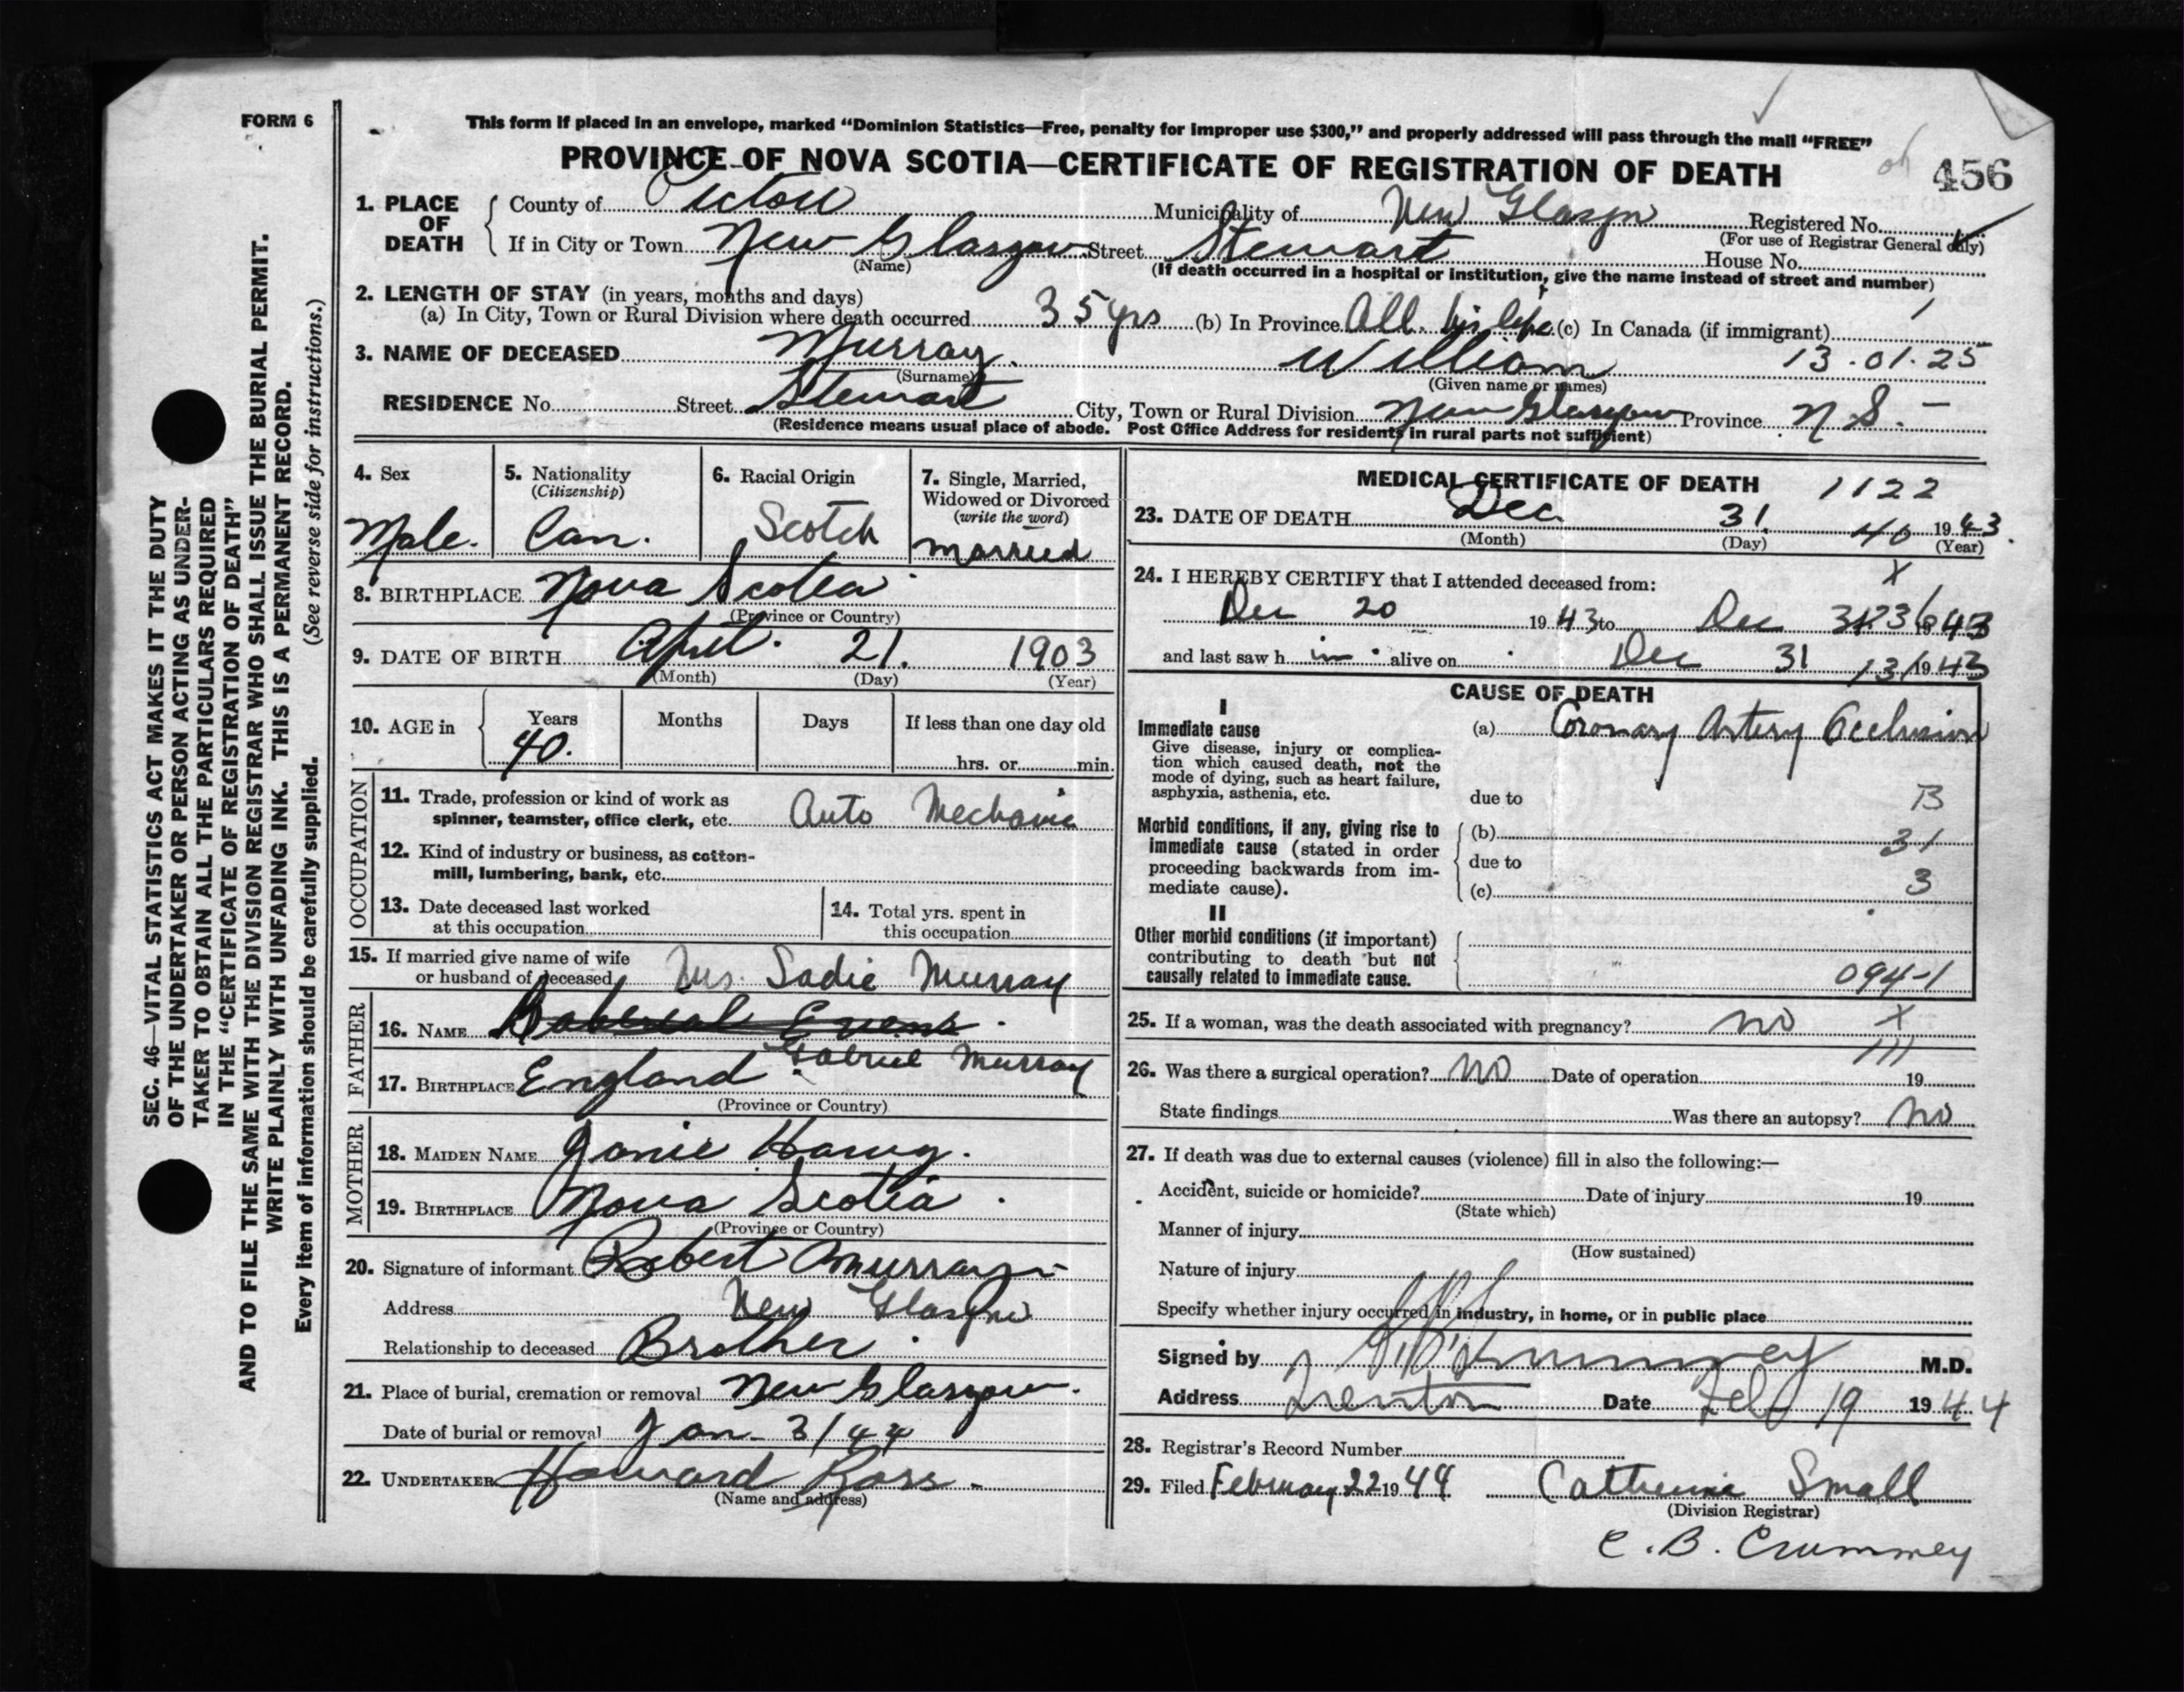 FORM 6
This form if placed in an envelope, marked “Dominion Statistics—Free, penalty for improper use $300,” and properly addressed will pass through the mail “FREE”
PROVINCE OF NOVA SCOTIA—CERTIFICATE OF REGISTRATION OF DEATH
456
1. PLACE OF DEATH
County of Pictou Municipality of New Glasgow Registered No.
(For use of Registrar General only)
If in City or Town New Glasgow Street Stewart House No.
(Name) (If death occurred in a hospital or institution, give the name instead of street and number)
2. LENGTH OF STAY (in years, months and days)
(a) In City, Town or Rural Division where death occurred 35 yrs (b) In Province All his life (c) In Canada (if immigrant)
3. NAME OF DECEASED Murray. William 13.01.25
(Surname) (Given name or names)
RESIDENCE No. Street Stewart City, Town or Rural Division New Glasgow Province N S. -
(Residence means usual place of abode. Post Office Address for residents in rural parts not sufficient)
4. Sex
Male.
5. Nationality
(Citizenship)
Can.
6. Racial Origin
Scotch
7. Single, Married, Widowed or Divorced
(write the word)
Married
8. BIRTHPLACE Nova Scotia
(Province or Country)
9. DATE OF BIRTH April. 21. 1903
(Month) (Day) (Year)
10. AGE in Years Months Days If less than one day old
40. hrs. or min.
OCCUPATION
11. Trade, profession or kind of work as
spinner, teamster, office clerk, etc. Auto Mechanic
12. Kind of industry or business, as cotton-
mill, lumbering, bank, etc.
13. Date deceased last worked
at this occupation
14. Total yrs. spent in
this occupation
15. If married give name of wife
or husband of deceased Mrs. Sadie Murray
FATHER
16. NAME
Gabriel Murray
17. BIRTHPLACE England
(Province or Country)
MOTHER
18. MAIDEN NAME Janie
19. BIRTHPLACE Nova Scotia.
(Province or Country)
20. Signature of informant Robert Murray
Address New Glasgow
Relationship to deceased Brother.
21. Place of burial, cremation or removal New Glasgow.
Date of burial or removal Jan. 3/44
22. UNDERTAKER Howard Ross.
(Name and address)
MEDICAL CERTIFICATE OF DEATH 1122
23. DATE OF DEATH Dec. 31. 40 1943.
(Month) (Day) (Year)
24. I HEREBY CERTIFY that I attended deceased from: X
Dec 20 1943 to Dec 31 1943
and last saw h im alive on Dec 31 1943
CAUSE OF DEATH
I
Immediate cause
Give disease, injury or complica-
tion which caused death, not the
mode of dying, such as heart failure,
asphyxia, asthenia, etc.
(a) Coronary Artery Occlusion
due to B
Morbid conditions, if any, giving rise to
immediate cause (stated in order
proceeding backwards from im-
mediate cause).
(b) 31
due to
(c) 3
II
Other morbid conditions (if important)
contributing to death but not
causally related to immediate cause.
094-1
25. If a woman, was the death associated with pregnancy? no X
111
26. Was there a surgical operation? No Date of operation 19
State findings Was there an autopsy? No
27. If death was due to external causes (violence) fill in also the following:—
Accident, suicide or homicide? Date of injury 19
(State which)
Manner of injury
(How sustained)
Nature of injury
Specify whether injury occurred in industry, in home, or in public place
Signed by Crummey M.D.
Address Trenton Date Feb 19 1944
28. Registrar's Record Number
29. Filed February 22 1944 Catherine Small
(Division Registrar)
C. B. Crummey
SEC. 46—VITAL STATISTICS ACT MAKES IT THE DUTY
OF THE UNDERTAKER OR PERSON ACTING AS UNDER-
TAKER TO OBTAIN ALL THE PARTICULARS REQUIRED
IN THE “CERTIFICATE OF REGISTRATION OF DEATH”
AND TO FILE THE SAME WITH THE DIVISION REGISTRAR WHO SHALL ISSUE THE BURIAL PERMIT.
WRITE PLAINLY WITH UNFADING INK. THIS IS A PERMANENT RECORD.
Every item of information should be carefully supplied. (See reverse side for instructions.)